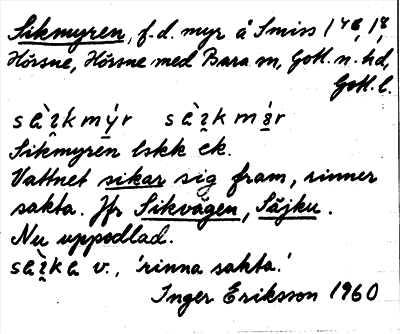 Sikmyren, f.d. myr å Smiss 1⁴⁶, 1⁸,
Hörsne, Hörsne med Bara sn, Gotl. n. hd,
Gotl. l.
Sikmyren lskk ek.
Vattnet sikar sig fram, rinner
sakta. Jfr Sikvägen, Säjku.
Nu uppodlad.
v., 'rinna sakta.'
Inger Eriksson 1960